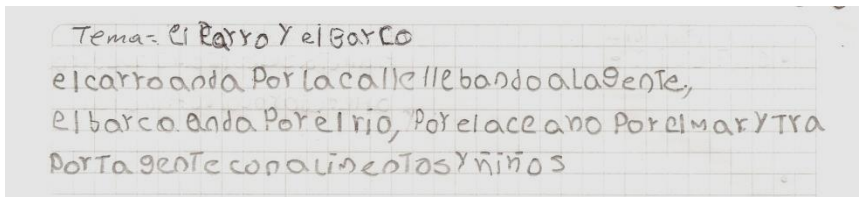 Tema= El Carro y el Barco
el carro anda Por la calle llebando a la gente,
el barco. anda Por el rio, Por el aceano Por el mar y tra
Porta gente con alimentos y niños